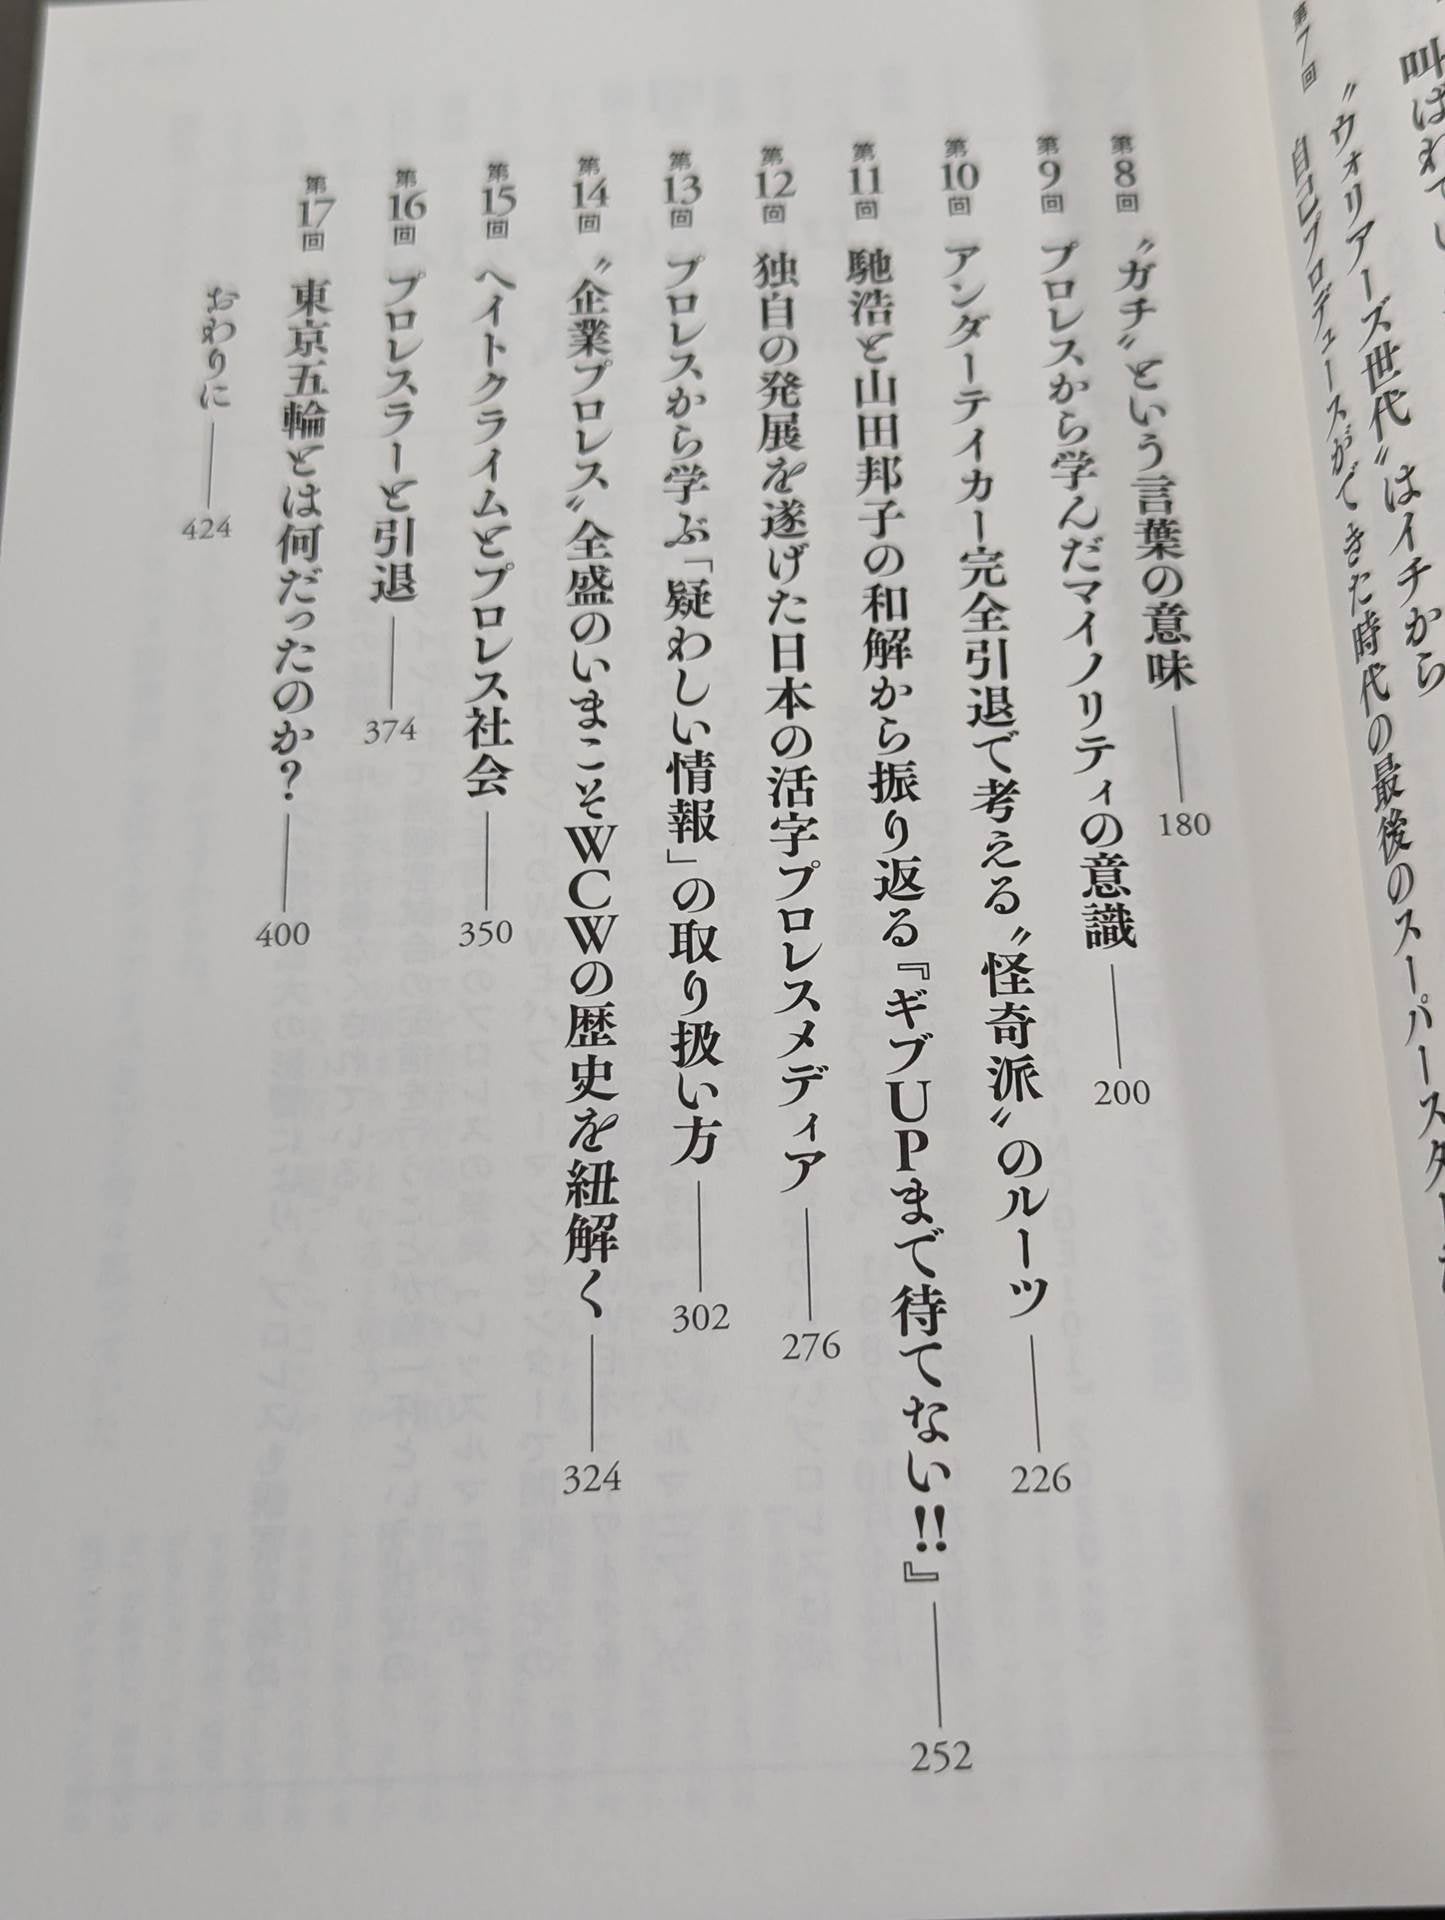 叫ばれてい
〝ウォリアーズ世代〟はイチから
第7回 自己プロデュースができた時代の最後のスーパースター
第8回 〝ガチ〟という言葉の意味 180
第9回 プロレスから学んだマイノリティの意識 200
第10回 アンダーテイカー完全引退で考える〝怪奇派〟のルーツ 226
第11回 馳浩と山田邦子の和解から振り返る『ギブUPまで待てない!!』 252
第12回 独自の発展を遂げた日本の活字プロレスメディア 276
第13回 プロレスから学ぶ「疑わしい情報」の取り扱い方 302
第14回 〝企業プロレス〟全盛のいまこそWCWの歴史を紐解く 324
第15回 ヘイトクライムとプロレス社会 350
第16回 プロレスラーと引退 374
第17回 東京五輪とは何だったのか？ 400
おわりに 424